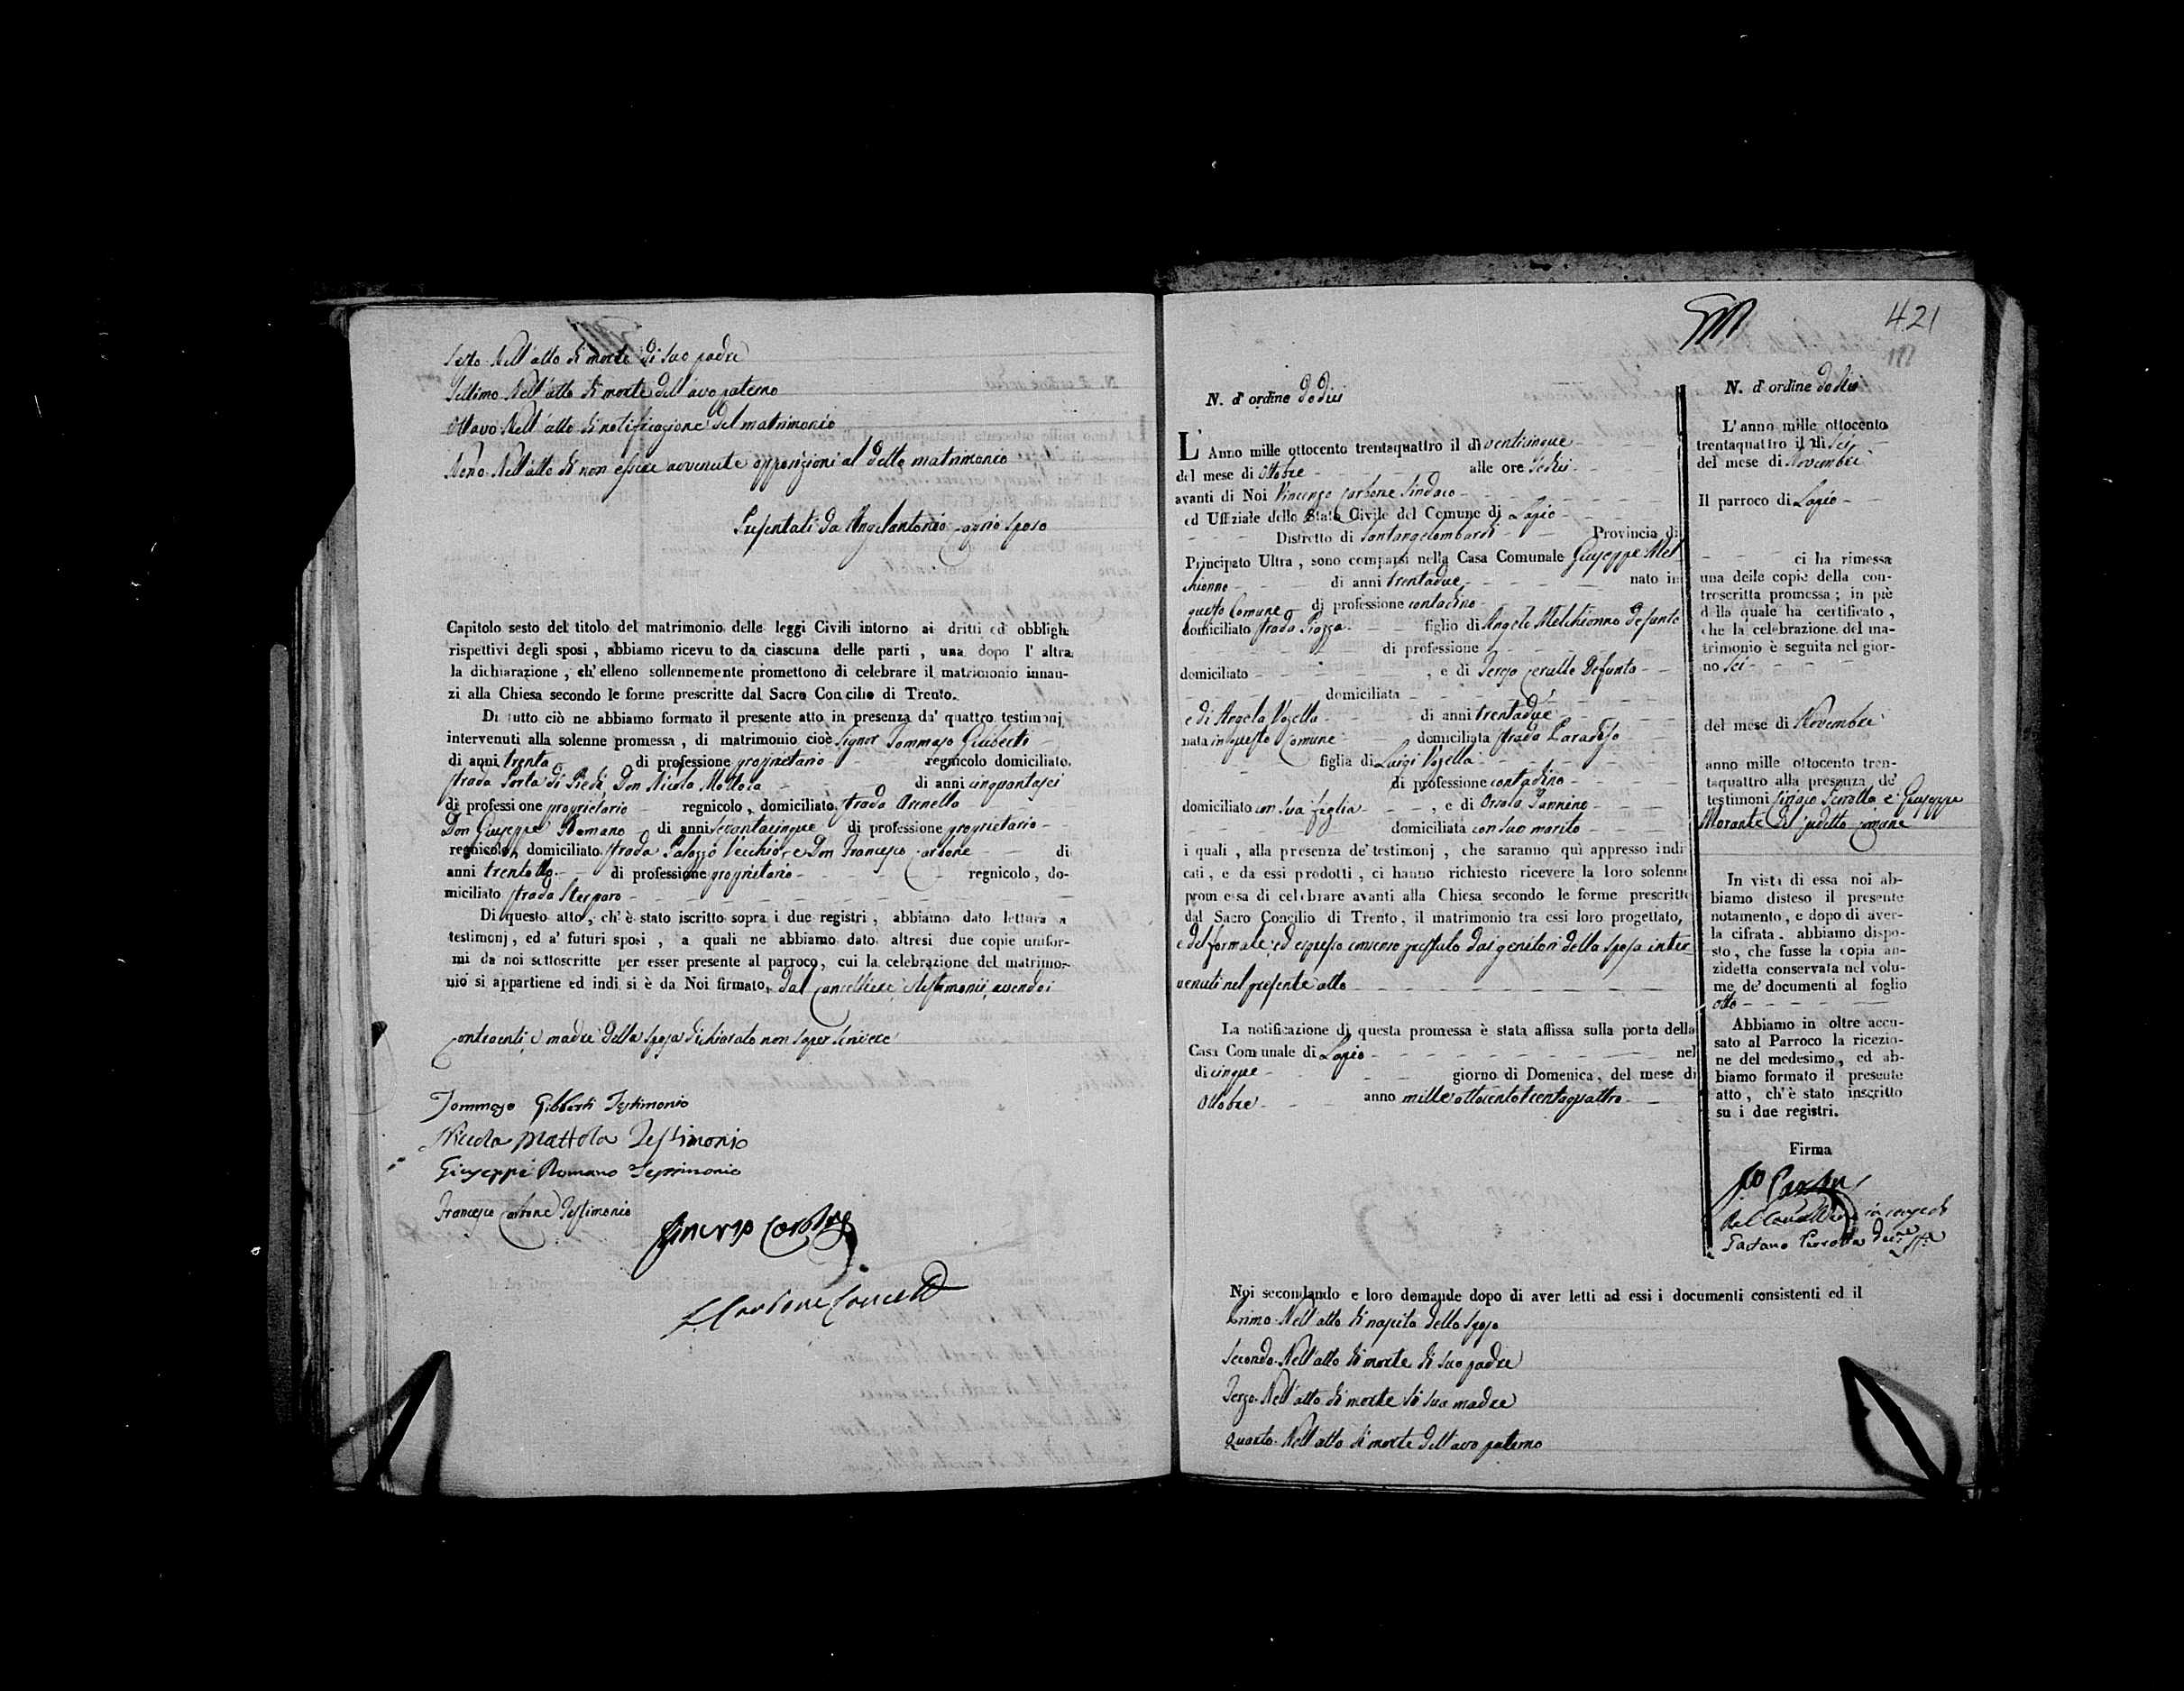 Sesto. Nell'atto di morte di suo padre
Settimo. Nell'atto di morte dell'avo paterno
Ottavo. Nell'atto di notificazione del matrimonio
Nono. Nell'atto di non essere avvenute opposizioni al detto matrimonio
Presentati da Angelantonio sposo
Capitolo sesto del titolo del matrimonio delle leggi Civili intorno ai dritti ed obbligh
rispettivi degli sposi , abbiamo ricevuto da ciascuna delle parti , una dopo l' altra
la dichiarazione , ch' elleno sollennemente promettono di celebrare il matrimonio innan-
zi alla Chiesa secondo le forme prescritte dal Sacro Concilio di Trento.
Di tutto ciò ne abbiamo formato il presente atto in presenza da' quattro testimonj
intervenuti alla solenne promessa , di matrimonio cioè Signor Tommaso Giliberti
di anni trenta di professione proprietario regnicolo domiciliato
strada Porta di Piedi, Don Nicola Mattola di anni cinquantasei
di professione proprietario regnicolo , domiciliato strada Arenella
Don Giuseppe Romano di anni settantacinque di professione proprietario
regnicolo, domiciliato strada Palazzo Vecchio, e Don Francesco Carbone di
anni trentotto di professione proprietario regnicolo , do-
miciliato strada
Di questo atto , ch' è stato iscritto sopra i due registri , abbiamo dato lettura a
testimonj , ed a' futuri sposi , a quali ne abbiamo dato altresi due copie unifor-
mi da noi sottoscritte per esser presente al parroco, cui la celebrazione del matrimo-
nio si appartiene ed indi si è da Noi firmato, dal Cancelliere, e testimonii, avendo i
Contraenti, e madre della sposa dichiarato non saper scrivere
Tommaso Giliberti Testimonio
Nicola Mattola Testimonio
Giuseppe Romano Testimonio
Francesco Carbone Testimonio
Vincenzo Carbone
Carbone Cancell
421
N. d' ordine dodici
L' Anno mille ottocento trentaquattro il dì venticinque
del mese di Ottobre alle ore sedici
avanti di Noi Vincenzo Carbone Sindaco
ed Uffiziale dello Stato Civile del Comune di Lapio
Distretto di Santangelombardi Provincia di
Principato Ultra , sono comparsi nella Casa Comunale Giuseppe Mel
chionno di anni trentadue nato in
questo Comune di professione contadino
domiciliato strada Piazza figlio di Angelo Melchionno defunto
di professione
domiciliato , e di Cerullo Defunta
domiciliata
e di Angela Vozella di anni trentadue
nata in questo Comune domiciliata strada Paradiso
figlia di Luigi Vozella
di professione contadino
domiciliato con sua figlia , e di Orsola Iannino
domiciliata con suo marito
i quali , alla presenza de' testimonj , che saranno quì appresso indi
cati , e da essi prodotti , ci hanno richiesto ricevere la loro solenne
promessa di celebrare avanti alla Chiesa secondo le forme prescritte
dal Sacro Concilio di Trento , il matrimonio tra essi loro progettato,
e del formale, ed espresso consenso prestato dai genitori della sposa inter
venuti nel presente atto
La notificazione di questa promessa è stata affissa sulla porta della
Casa Comunale di Lapio nel
di cinque giorno di Domenica, del mese di
Ottobre anno mille ottocento trentaquattro
N. d' ordine dodici
L' anno mille ottocento
trentaquattro il dì sei
del mese di Novembre
Il parroco di Lapio
ci ha rimessa
una delle copie della con-
troscritta promessa ; in piè
della quale ha certificato ,
che la celebrazione del ma-
trimonio è seguita nel gior-
no sei
del mese di Novembre
anno mille ottocento tren-
taquattro alla presenza de'
testimoni Ciriaco Perrotta, e Giuseppe
Morante del sudetto Comune
In vista di essa noi ab-
biamo disteso il presente
notamento , e dopo di aver-
la cifrata . abbiamo dispo-
sto , che fusse la copia an-
zidetta conservata nel volu-
me de' documenti al foglio
otto
Abbiamo in oltre accu-
sato al Parroco la ricezio-
ne del medesimo , ed ab-
biamo formato il presente
atto , ch' è stato inscritto
su i due registri.
Firma
Gaetano Perrotta
Noi secondando e loro domande dopo di aver letti ad essi i documenti consistenti ed il
Primo. Nell'atto di nascita dello sposo
Secondo. Nell'atto di morte di suo padre
Terzo. Nell'atto di morte di sua madre
Quarto. Nell'atto di morte dell'avo paterno